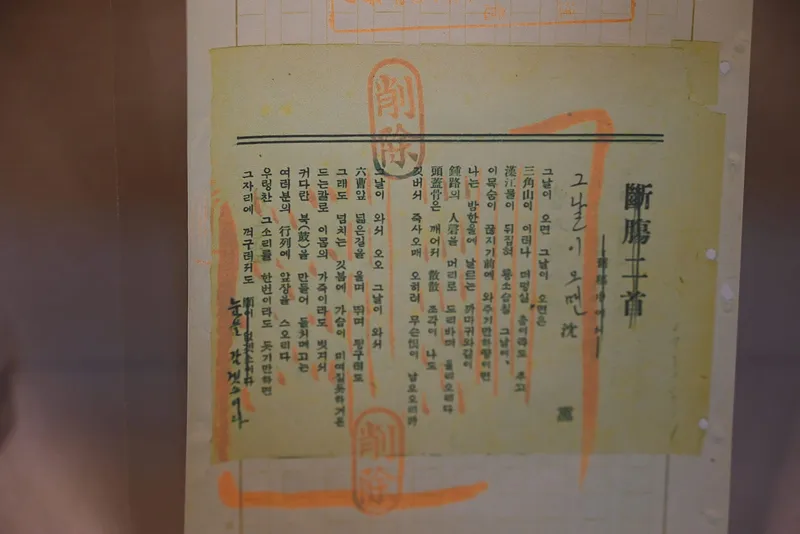 斷膓二首
그날이 오면 沈 熏
그날이 오면 그날이 오면은
三角山이 이러나 더덩실 춤이라도 추고
漢江물이 뒤집혀 룡소슴칠 그날이,
이목숨이 끊지기前에 와주기만하량이면
나는 밤한울에 날르는 까마귀와같이
鍾路의 人磬을 머리로 드리바더 울리오리다
頭蓋骨은 깨어져 散散 조각이 나도
깃버서 죽사오매 오히려 무슨恨이 남으오리까
그날이 와서 오오 그날이 와서
六曹앞 넓은길을 울며 뛰며 뒹구러도
그래도 넘치는 깃븜에 가슴이 미여질듯하거든
드는칼로 이몸의 가죽이라도 벗겨서
커다란 북(鼓)을 만들어 둘처메고는
여러분의 行列에 앞장을 스오리다
우렁찬 그소리를 한번이라도 듯기만하면
그자리에 꺽구러져도
눈을 감겟소이다
削除
削除